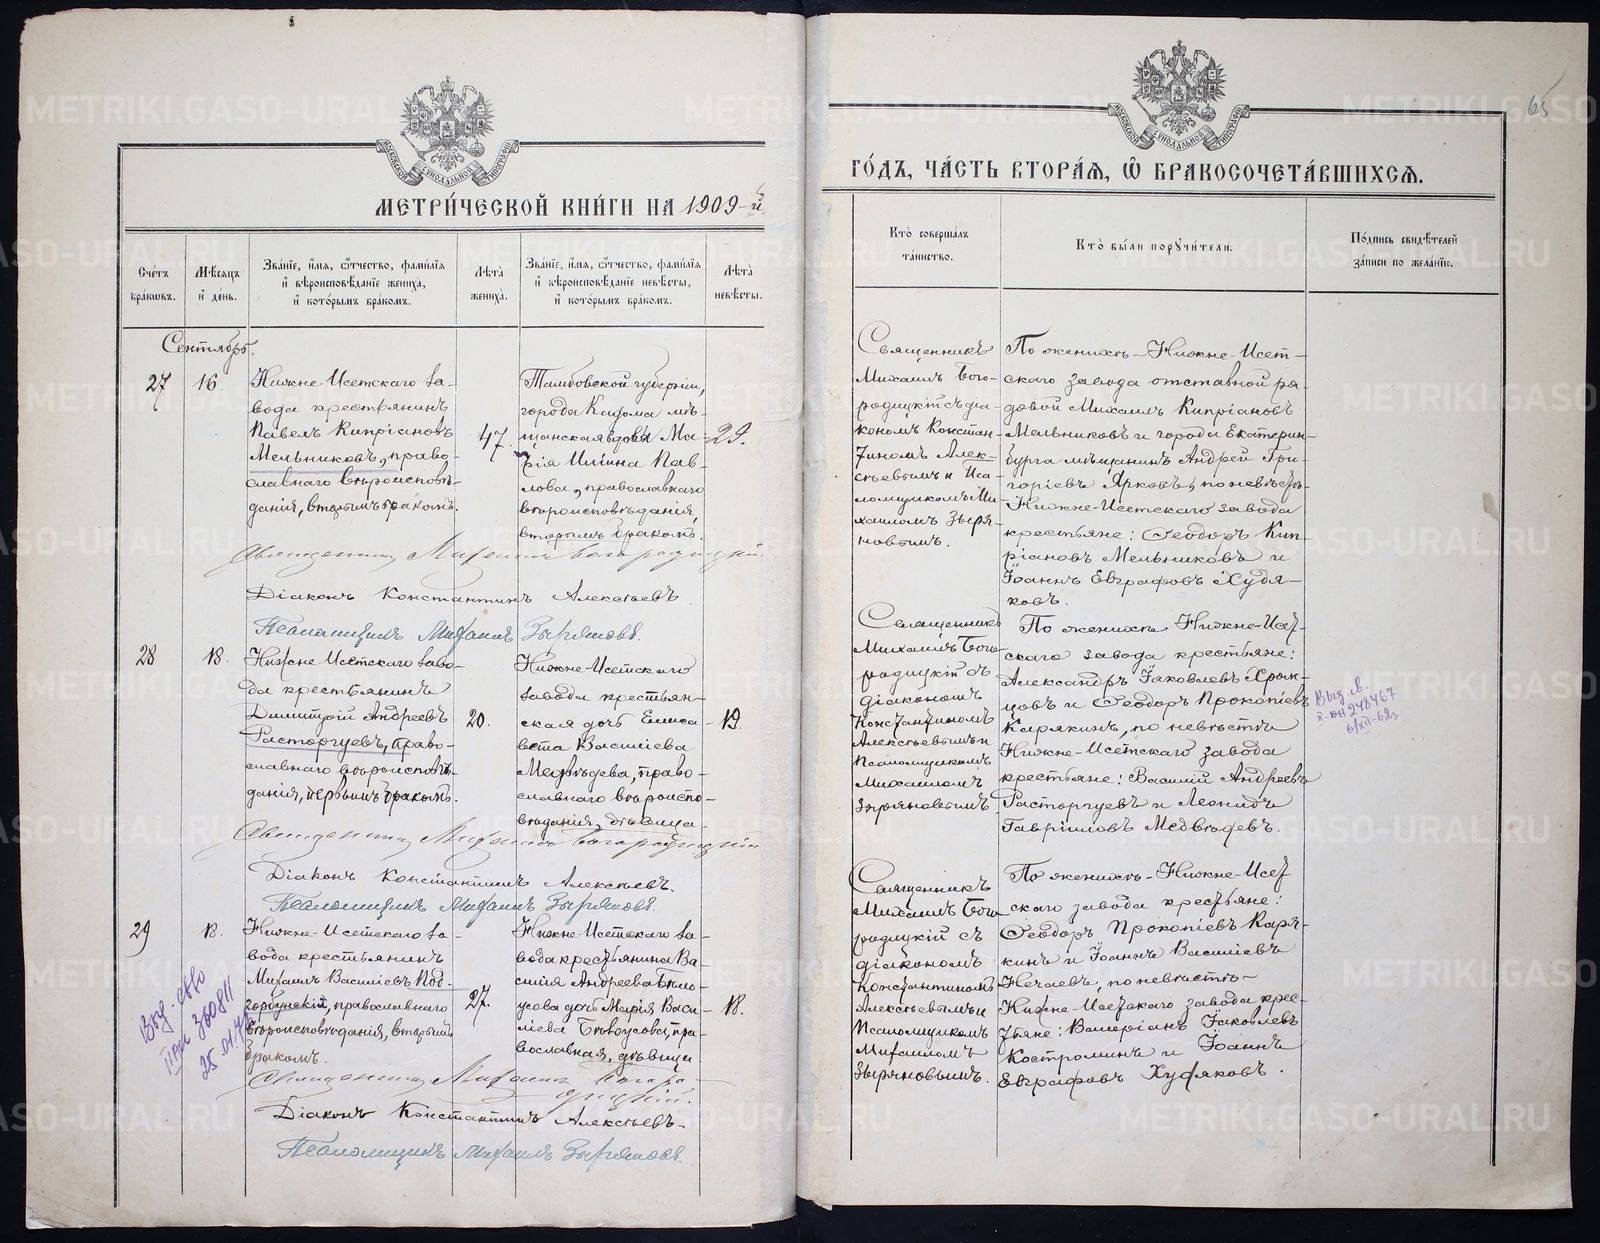 65
МОСКОВСКОЙ СѴНОДАЛЬНОЙ ТИПОГРАФІИ
МЕТРИ́ЧЕСКОЙ КНИ́ГИ НА 1909-й
Сче́тъ бра́кѡвъ.
Мѣ́сяцъ и҆ де́нь.
Зва́нїе, и҆́мя, ѻ҆́тчество, фами́лїя и҆ вѣроисповѣ́данїе жениха̀, и҆ кото́рымъ бра́комъ.
Лѣ́та жениха̀.
Зва́нїе, и҆́мя, ѻ҆́тчество, фами́лїя и҆ вѣроисповѣ́данїе невѣ́сты, и҆ кото́рымъ бра́комъ.
Лѣ́та невѣ́сты.
Сентябрь.
27
16.
Нижне-Исетскаго за-
вода крестьянинъ
Павелъ Кипріановъ
Мельниковъ, право-
славнаго вѣроисповѣ-
данія, вторымъ бракомъ.
47.
Тамбовской губерніи,
города Кадома мѣ-
щанская вдова Ма-
рія Ильина Пав-
лова, православнаго
вѣроисповѣданія,
вторымъ бракомъ.
29.
Священникъ Михаилъ Богородицкій.
Діаконъ Константинъ Алексѣевъ
Псаломщикъ Михаилъ Зыряновъ.
28
18.
Нижне-Исетскаго заво-
да крестьянинъ
Димитрій Андреевъ
Расторгуевъ, право-
славнаго вѣроисповѣ-
данія, первымъ бракомъ.
20.
Нижне-Исетскаго
завода крестьян-
ская дочь Елиса-
вета Васильева
Медвѣдева, право-
славнаго вѣроиспо-
вѣданія, дѣвица.
19.
Священникъ Михаилъ Богородицкій
Діаконъ Константинъ Алексѣевъ.
Псаломщикъ Михаилъ Зыряновъ.
29
18.
Нижне-Исетскаго за-
вода крестьянинъ
Михаилъ Васильевъ Под-
горбунскій, православнаго
вѣроисповѣданія, вторымъ
бракомъ.
27.
Нижне-Исетскаго за-
вода крестьянина Ва-
силія Андреева Бѣло-
усова дочь Марія Васи-
льева Бѣлоусова, пра-
вославная, дѣвица
18.
Выд. св-во
II АИ 360811
Священникъ Михаилъ Богоро-
дицкій.
Діаконъ Константинъ Алексѣевъ-
Псаломщикъ Михаилъ Зыряновъ.
МОСКОВСКОЙ СѴНОДАЛЬНОЙ ТИПОГРАФІИ
ГО́ДЪ, ЧА́СТЬ ВТОРА́Я, Ѽ БРАКОСОЧЕТА́ВШИХСЯ.
Кто̀ соверша́лъ та́инство.
Кто̀ бы́ли порꙋчи́тели.
По́дпись свидѣ́телей за́писи по жела́нїю.
Священникъ
Михаилъ Бого-
родицкій съ діа-
кономъ Констан-
тиномъ Алек-
сѣевымъ и Пса-
ломщикомъ Ми-
хаиломъ Зыря-
новымъ.
По женихѣ-Нижне-Исет-
скаго завода отставной ря-
довой Михаилъ Кипріановъ
Мельниковъ и города Екатерин-
бурга мѣщанинъ Андрей Гри-
горіевъ Ярковъ, по невѣстѣ
-Нижне-Исетскаго завода
крестьяне: Ѳеодоръ Кип-
ріановъ Мельниковъ и
Іоаннъ Евграфовъ Худя-
ковъ.
Священникъ
Михаилъ Бого-
родицкій съ
діакономъ
Константиномъ
Алексѣевымъ и
Псаломщикомъ
Михаиломъ
Зыряновымъ
По женихѣ Нижне-Исет-
скаго завода крестьяне:
Александръ Іаковлевъ Хром-
цовъ и Ѳеодоръ Прокопіевъ
Карякинъ, по невѣстѣ
Нижне-Исетскаго завода
крестьяне: Василій Андреевъ
Расторгуевъ и Леонидъ
Гавріиловъ Медвѣдевъ.
Выд. св.
II-ЮН 248467
6/XII-62г
Священникъ
Михаилъ Бого-
родицкій съ
діакономъ
Константиномъ
Алексѣевымъ и
Псаломщикомъ
Михаиломъ
Зыряновымъ.
По женихѣ-Нижне-Исет
скаго завода крестьяне:
Ѳеодоръ Прокопіевъ Каря-
кинъ и Іоаннъ Васильевъ
Нечаевъ, по невѣстѣ-
Нижне-Исетскаго завода крес-
тьяне: Валеріанъ Іаковлевъ
Костроминъ и Іоаннъ
Евграфовъ Худяковъ.
METRIKI.GASO-URAL.RU